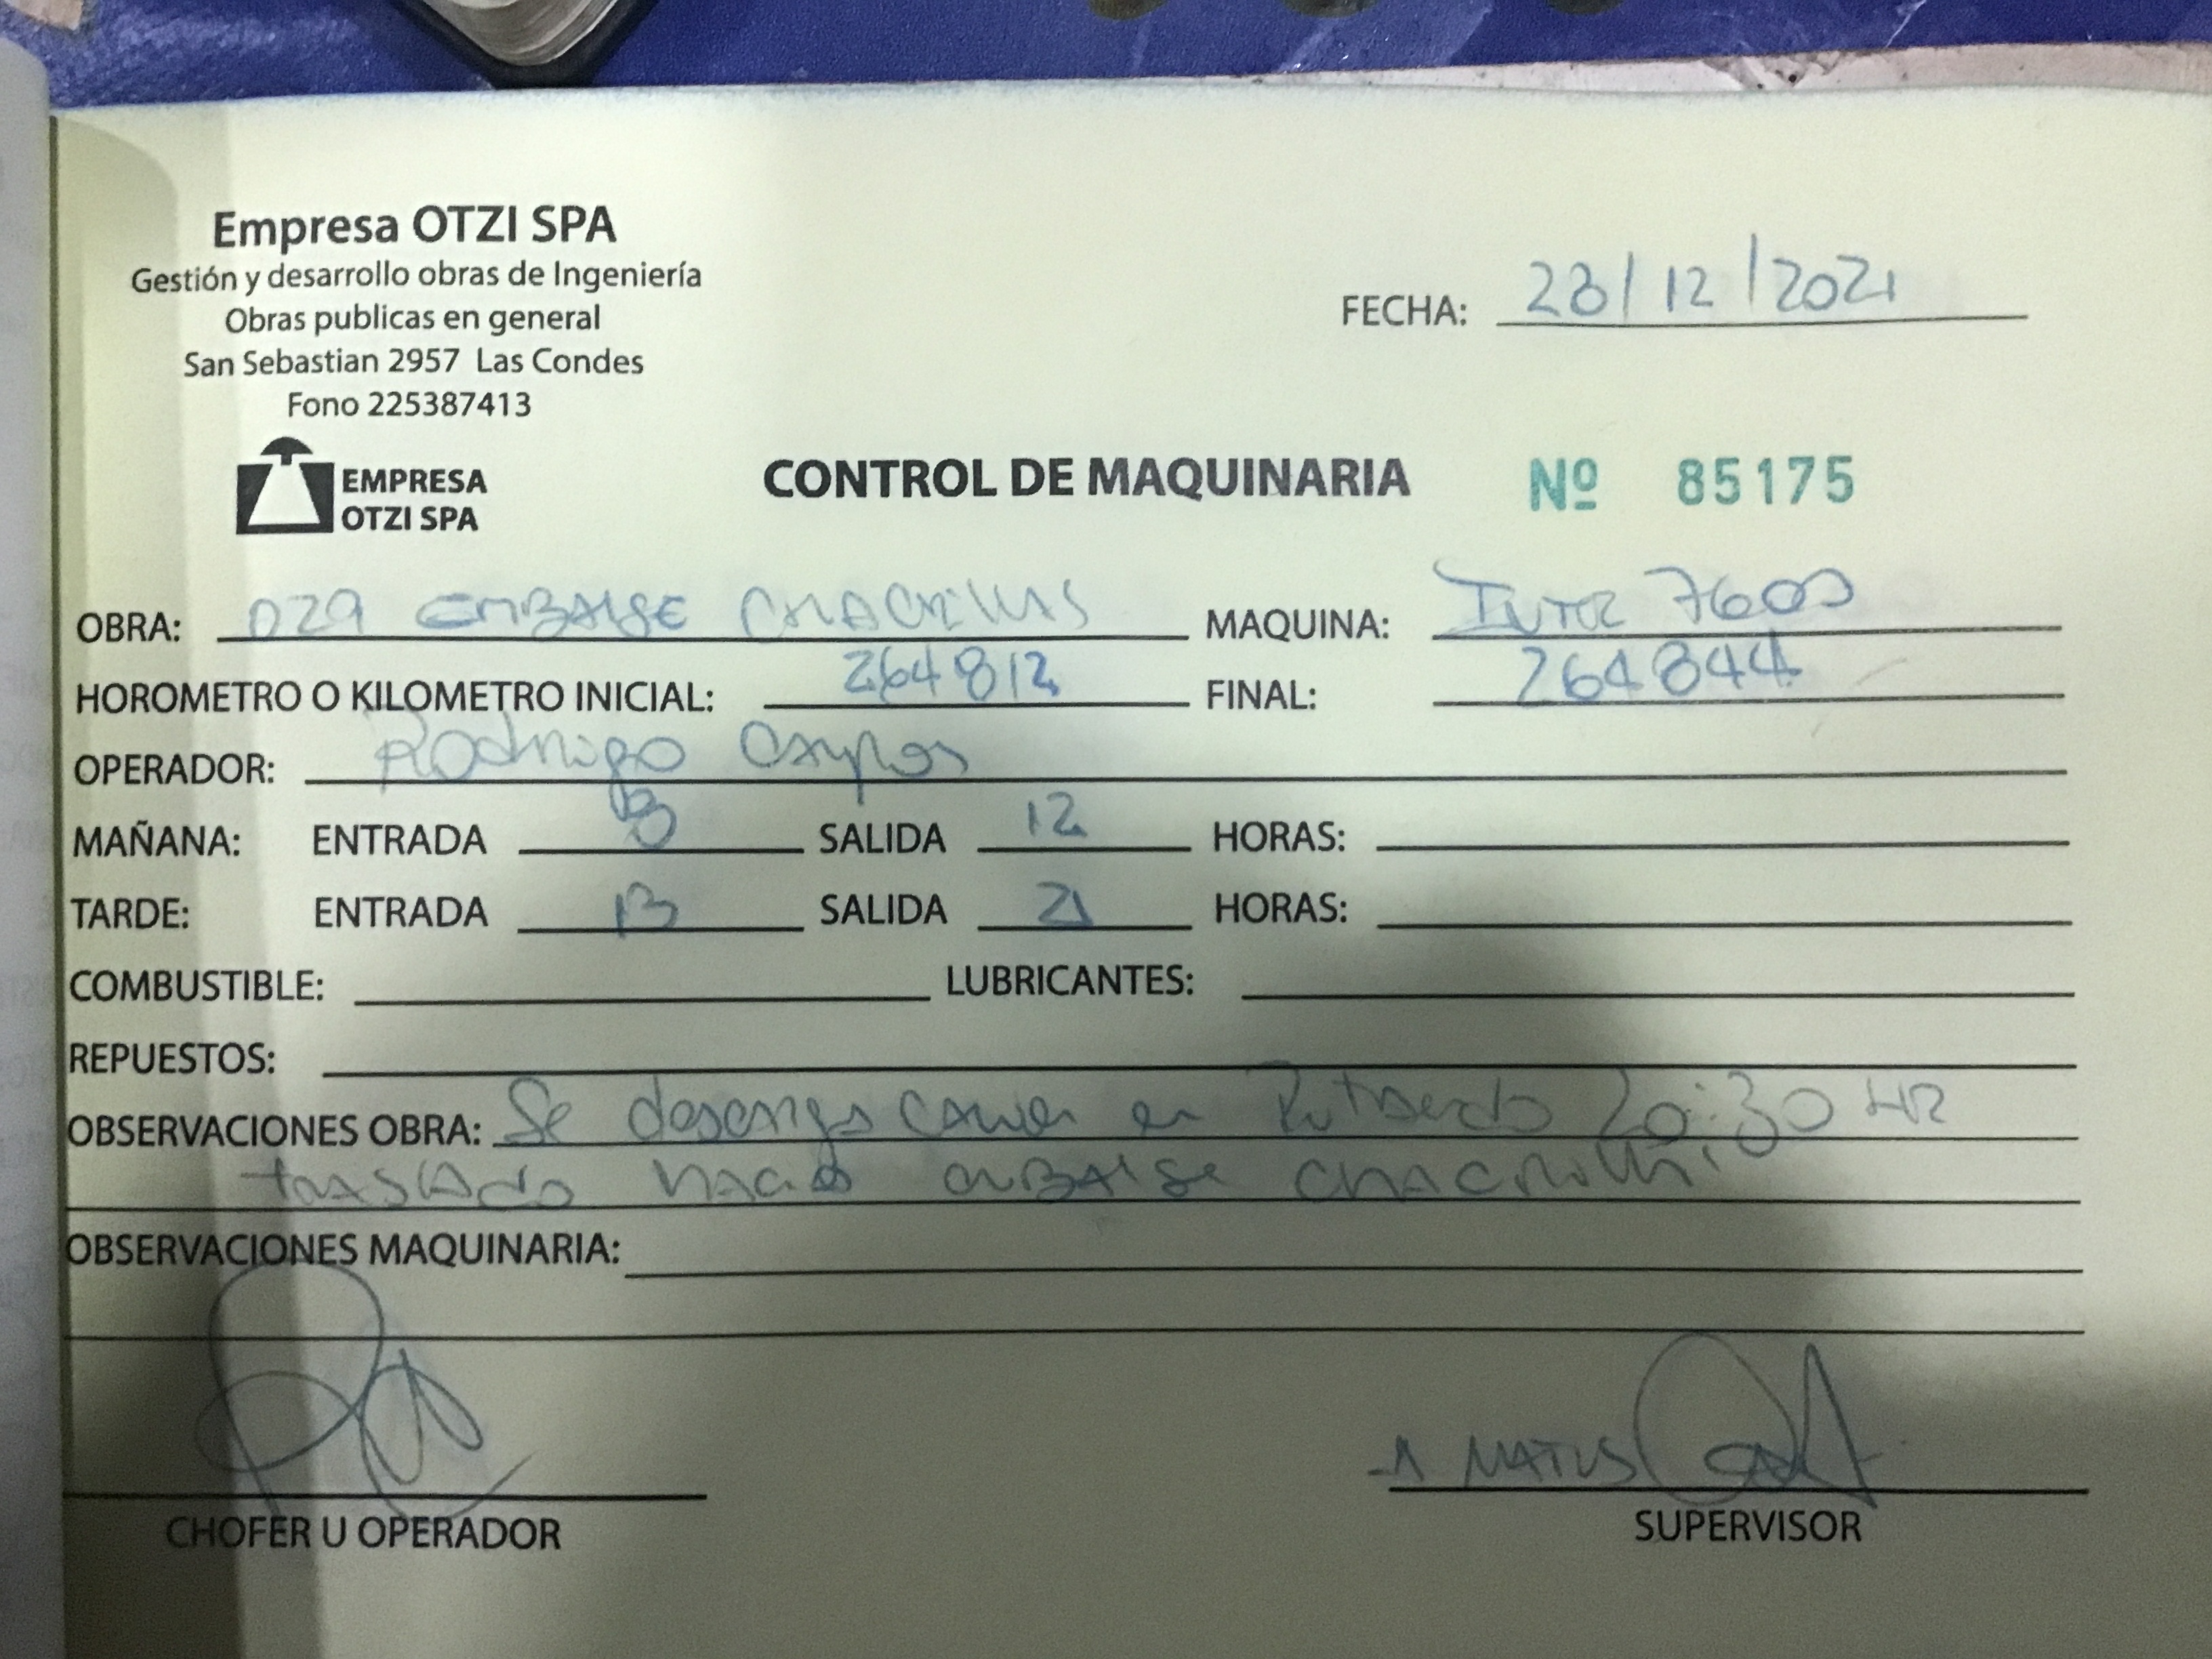 Empresa OTZI SPA
Gestión y desarrollo obras de Ingeniería
Obras publicas en general
San Sebastian 2957 Las Condes
Fono 225387413
FECHA: 28/12/2021
EMPRESA
OTZI SPA
CONTROL DE MAQUINARIA Nº 85175
OBRA: 029 EMBALSE CHACRILLAS MAQUINA: 7600
HOROMETRO O KILOMETRO INICIAL: 264812 FINAL: 264844
OPERADOR: Rodrigo Campos
MAÑANA: ENTRADA 08 SALIDA 12 HORAS:
TARDE: ENTRADA 13 SALIDA 21 HORAS:
COMBUSTIBLE: LUBRICANTES:
REPUESTOS:
OBSERVACIONES OBRA: Se descarga camion en Putaendo 20:30 HR
traslado hacia embalse chacrillas
OBSERVACIONES MAQUINARIA:
CHOFER U OPERADOR
SUPERVISOR